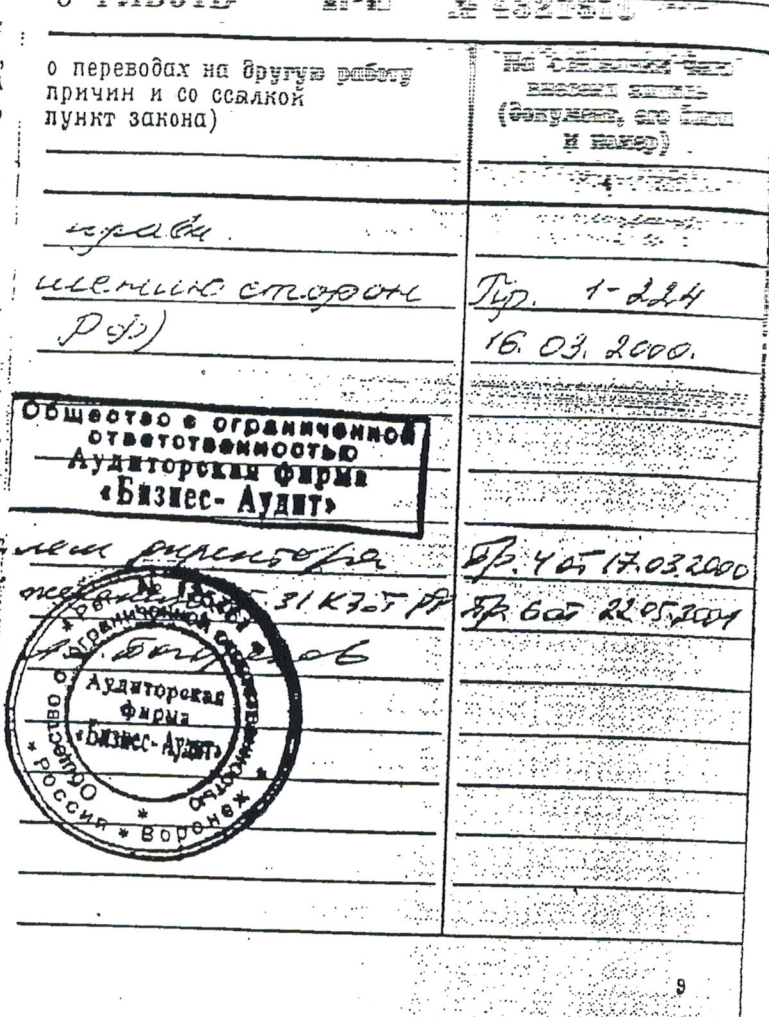 о переводах на другую работу
причин и со ссылкой
пункт закона)
На основании чего
внесена запись
(документ, его дата
и номер)
4
шению сторон
Пр. 1-224
РФ)
16.03.2000.
Общество с ограниченной
ответственностью
Аудиторская фирма
«Бизнес-Аудит»
директора
Пр. 4 от 17.03.2000
31 КЗоТ РФ
Пр 6 от 22.05.2001
Общество с ограниченной ответственностью
* Россия * Воронеж *
Аудиторская
фирма
«Бизнес-Аудит»
9